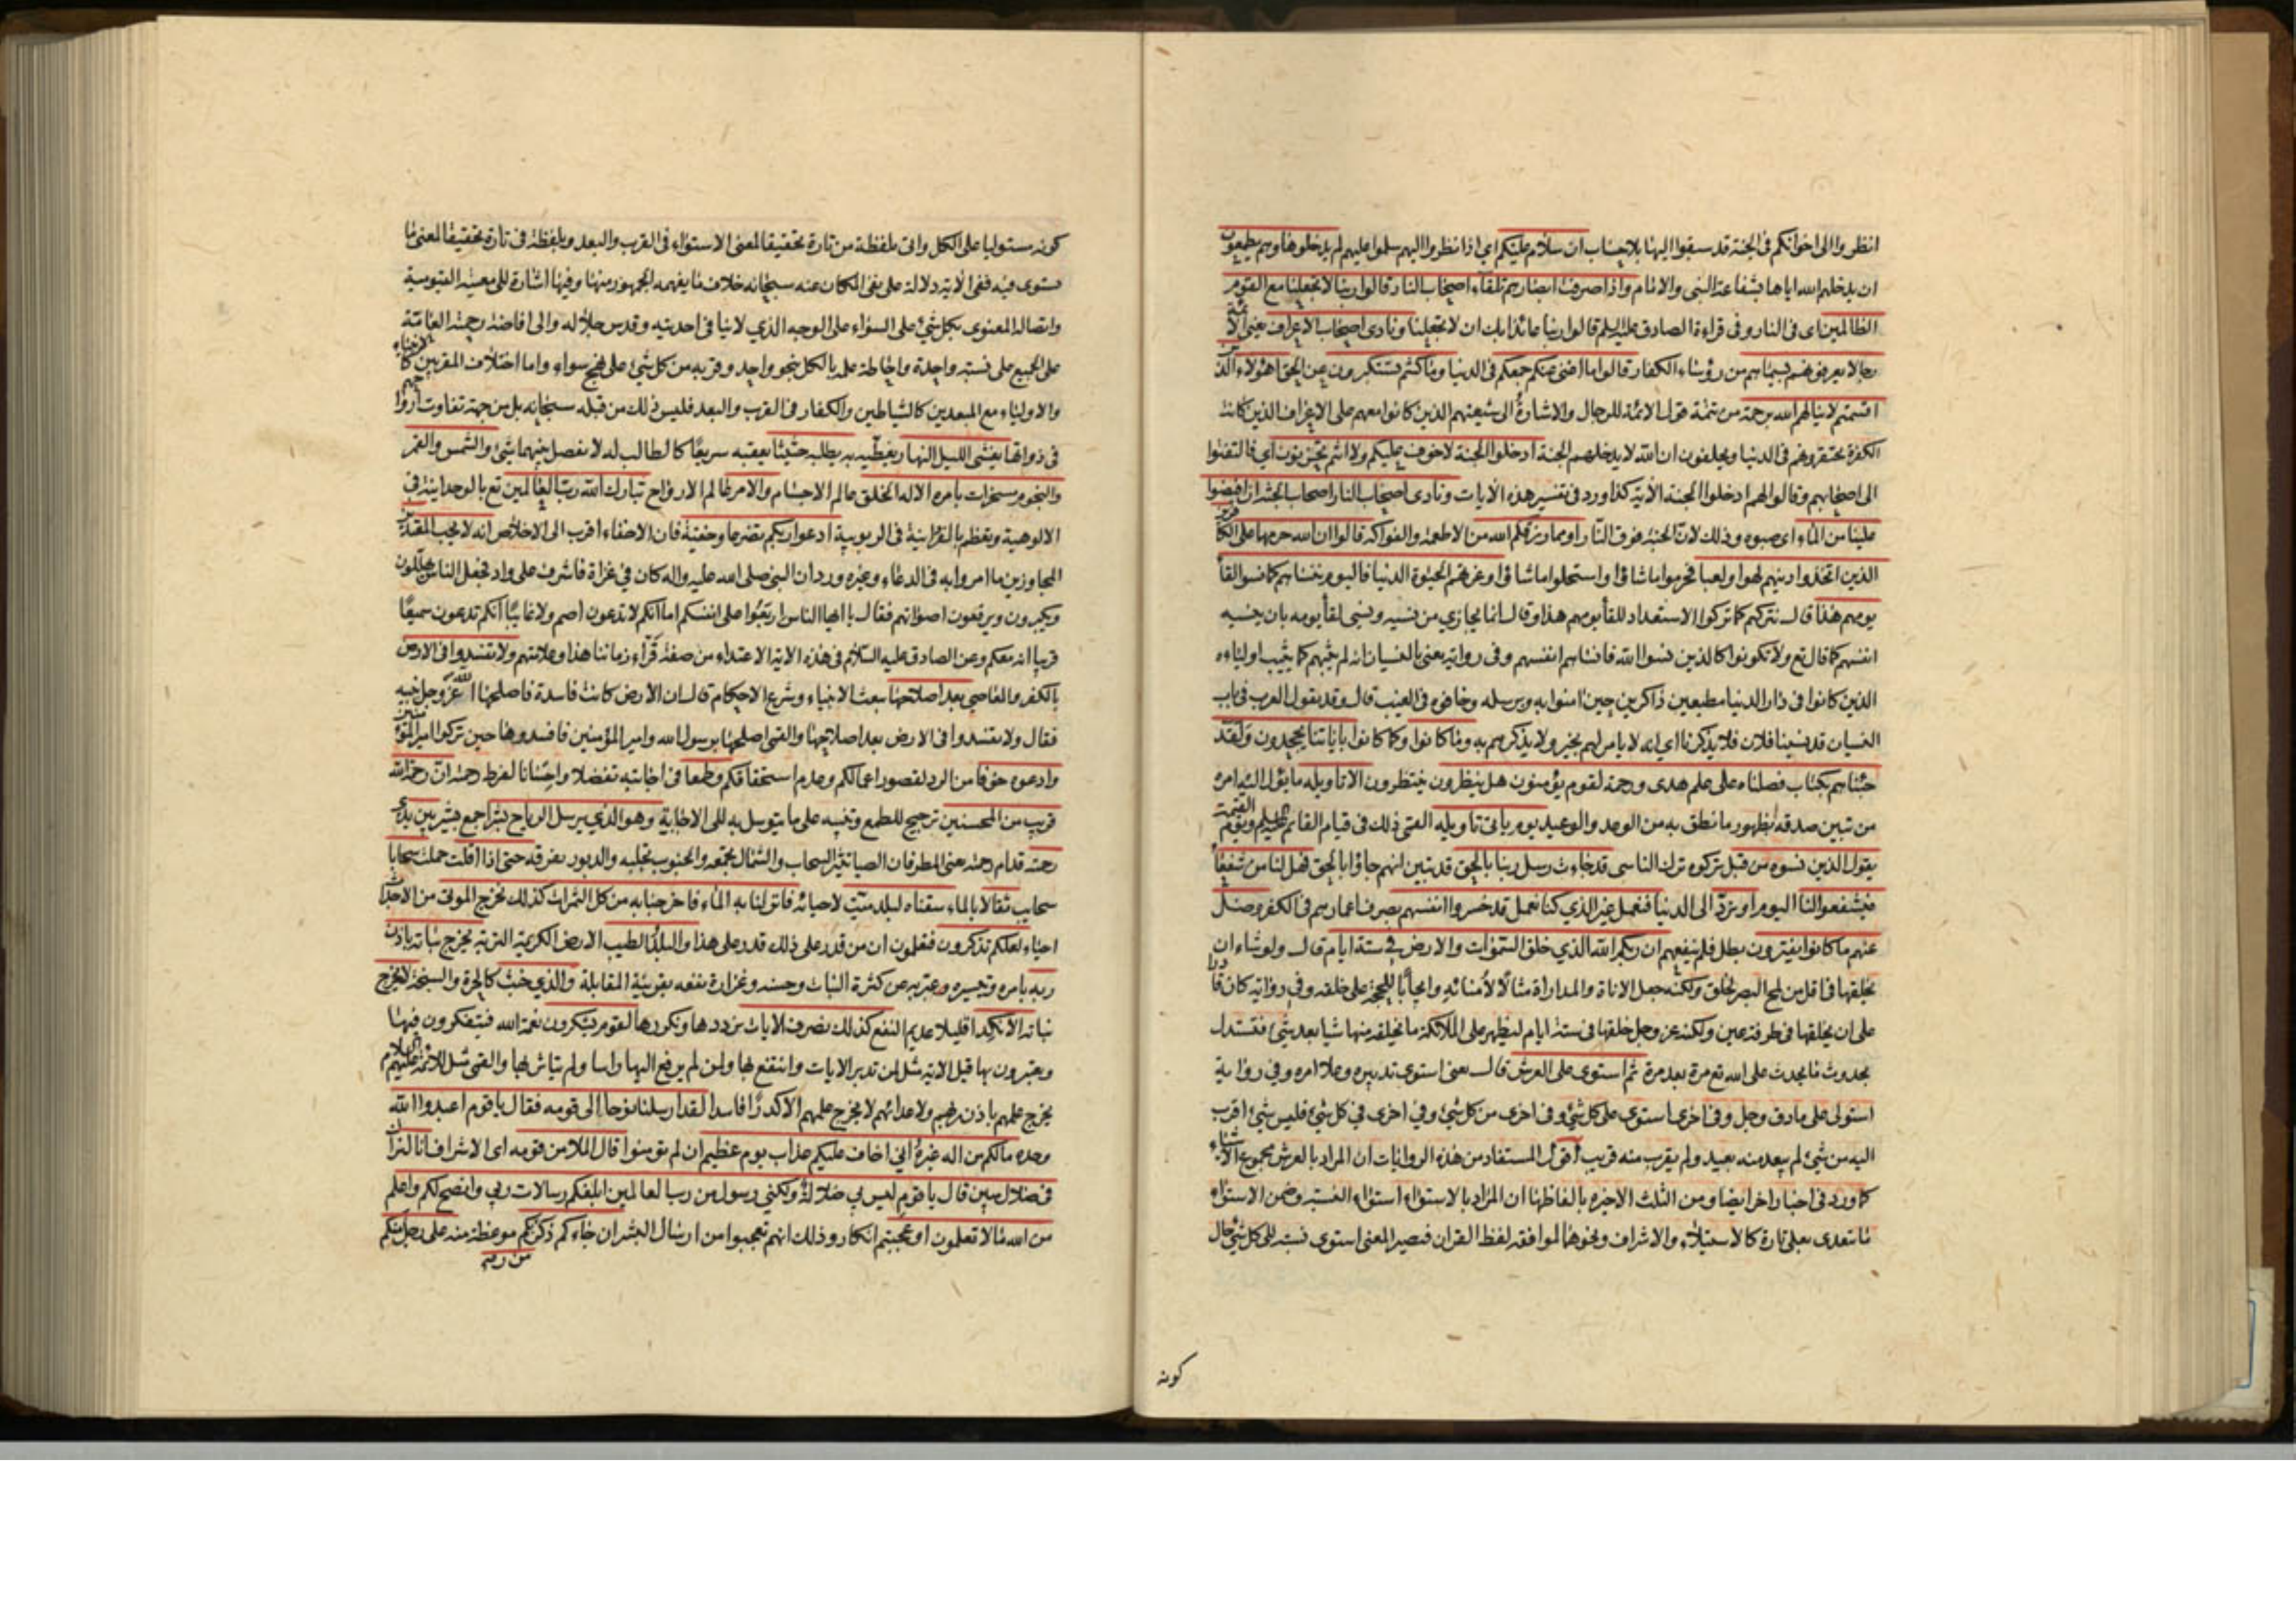 انظروا الى اخوانكم فى الجنة قد سبقوا اليها بلا حساب ان سلام عليكم اي اذا نظروا اليهم سلموا عليهم لم يدخلوها وهم يطمعون
ان يدخلهم الله اياها بشفاعة النبى والامام واذا صرفت ابصارهم تلقاء اصحاب النار قالوا ربنا لا تجعلنا مع القوم
الظالمين اى فى النار وفى قراءة الصادق عليه السلم قالوا ربنا عائذا بك ان لا تجعلنا ونادى اصحاب الاعراف يعنى الائمة
رجالا يعرفونهم بسيماهم من رؤساء الكفار قالوا ما اغنى عنكم جمعكم فى الدنيا وما كنتم تستكبرون عن الحق اهؤلاء الذين
اقسمتم لا ينالهم الله برحمة من تتمة قول الائمة للرجال والاشارة الى شيعتهم الذين كانوا معهم على الاعراف الذين كانت
الكفرة يحتقرونهم فى الدنيا ويحلفون ان الله لا يدخلهم الجنة ادخلوا الجنة لا خوف عليكم ولا انتم تحزنون اي فالتفتوا
الى اصحابهم وقالوا لهم ادخلوا الجنة الاية كذا ورد فى تفسير هذه الايات ونادى اصحاب النار اصحاب الجنة ان افيضوا
علينا من الماء اى صبوه وذلك لان الجنة فوق النار او مما رزقكم الله من الاطعمة والفواكه قالوا ان الله حرمهما على الكافرين
الذين اتخذوا دينهم لهوا ولعبا فحرموا ما شاؤا واستحلوا ما شاؤا وغرتهم الحيوة الدنيا فاليوم ننساهم كما نسوا لقاء
يومهم هذا قال نتركهم كما تركوا الاستعداد للقاء يومهم هذا وقال انما يجازي من نسيه ونسى لقاء يومه بان ينسيهم
انفسهم كما قال تع ولا تكونوا كالذين نسوا الله فانساهم انفسهم وفى رواية يعنى بالنسيان انه لم يثبهم كما يثيب اولياءه
الذين كانوا فى دار الدنيا مطيعين ذاكرين حين امنوا به وبرسله وخافوه فى الغيب قال وقد يقول العرب فى باب
النسيان قد نسينا فلان فلا يذكرنا اي انه لا يامر لهم بخير ولا يذكرهم به وما كانوا وكما كانوا بآياتنا يجحدون ولقد
جئناهم بكتاب فصلناه على علم هدى ورحمة لقوم يؤمنون هل ينظرون ينتظرون الا تاويله ما يؤل اليه امره
من تبين صدقه بظهور ما نطق به من الوعد والوعيد يوم ياتى تاويله القمى ذلك فى قيام القائم عليه السلم ويوم القيمة
يقول الذين نسوه من قبل تركوه ترك الناسى قد جاءت رسل ربنا بالحق قد تبين انهم جاؤا بالحق فهل لنا من شفعاء
فيشفعوا لنا اليوم او نرد الى الدنيا فنعمل غير الذي كنا نعمل قد خسروا انفسهم بصرف اعمارهم فى الكفر وضل
عنهم ما كانوا يفترون بطل فلم ينفعهم ان ربكم الله الذي خلق السموات والارض فى ستة ايام قال ولو شاء ان
يخلقها فى اقل من لمح البصر لخلق ولكنه جعل الاناة والمداراة مثالا لامنائه وايجابا للحجة على خلقه وفى رواية كان قادرا
على ان يخلقها فى طرفة عين ولكنه عز وجل خلقها فى ستة ايام ليظهر على الملائكة ما يخلقه منها شيئا بعد شئ فتستدل
بحدوث ما يحدث على الله تع مرة بعد مرة ثم استوى على العرش قال يعنى استوى تدبيره وعلا امره وفى رواية
استولى على ما دق وجل وفى اخرى استوى على كل شئ وفى اخرى من كل شئ وفى اخرى فى كل شئ فليس شئ اقرب
اليه من شئ لم يبعد منه بعيد ولم يقرب منه قريب اقول المستفاد من هذه الروايات ان المراد بالعرش مجموع الاشياء
كما ورد فى اخبار اخر ايضا ومن الثلث الاخيرة بالفاظها ان المراد بالاستواء استواء النسبة وضمن الاستواء
ما يتعدى بعلى تارة كالاستيلاء والاشراف ونحوهما لموافقة لفظ القران فيصير المعنى استوى نسبته الى كل شئ حال
كونه
كونه مستوليا على الكل واتى بلفظة من تارة تحقيقا لمعنى الاستواء فى القرب والبعد وبلفظة فى تارة تحقيقا لمعنى ما
يستوى فيه ففى الاية دلالة على نفى المكان عنه سبحانه خلاف ما يفهمه الجمهور منها وفيها اشارة الى معيته القيومية
واتصاله المعنوى بكل شئ على السواء على الوجه الذي لا ينافى احديته وقدس جلاله والى افاضة رحمته العامة
على الجميع على نسبة واحدة واحاطة علمه بالكل بنحو واحد وقربه من كل شئ على نهج سواء واما اختلاف المقربين كالانبياء
والاولياء مع المبعدين كالشياطين والكفار فى القرب والبعد فليس ذلك من قبله سبحانه بل من جهة تفاوت ارواحهم
فى ذواتها يغشى الليل النهار يغطيه به يطلبه حثيثا يعقبه سريعا كالطالب له لا يفصل بينهما شئ والشمس والقمر
والنجوم مسخرات بامره الا له الخلق عالم الاجسام والامر عالم الارواح تبارك الله رب العالمين تع بالوحدانية فى
الالوهية وتعظم بالفردانية فى الربوبية ادعوا ربكم تضرعا وخفية فان الاخفاء اقرب الى الاخلاص انه لا يحب المعتدين
المجاوزين ما امروا به فى الدعاء وغيره ورد ان النبي صلى الله عليه واله كان فى غزاة فاشرف على واد فجعل الناس يهللون
ويكبرون ويرفعون اصواتهم فقال يا ايها الناس اربعوا على انفسكم اما انكم لا تدعون اصم ولا غائبا انكم تدعون سميعا
قريبا انه معكم وعن الصادق عليه السلام فى هذه الاية الاعتداء من صفة قراء زماننا هذا وعلامتهم ولا تفسدوا فى الارض
بالكفر والمعاصى بعد اصلاحها ببعث الانبياء وشرع الاحكام قال ان الارض كانت فاسدة فاصلحها الله عز وجل بنبيه
فقال ولا تفسدوا فى الارض بعد اصلاحها والقمى اصلحها برسول الله وامير المؤمنين فافسدوها حين تركوا امير المؤمنين
وادعوه خوفا من الرد لقصور اعمالكم وعدم استحقاقكم وطمعا فى اجابته تفضلا واحسانا لفرط رحمته ان رحمة الله
قريب من المحسنين ترجيح للطمع وتنبيه على ما يتوسل به الى الاجابة وهو الذي يرسل الرياح بشرا جمع بشير بين يدى
رحمته قدام رحمته يعنى المطر فان الصبا تثير السحاب والشمال تجمعه والجنوب تجلبه والدبور تفرقه حتى اذا اقلت حملت سحابا
سحايب ثقالا بالماء سقناه لبلد ميت لاحيائه فانزلنا به الماء فاخرجنا به من كل الثمرات كذلك نخرج الموتى من الاجداث
احياء لعلكم تذكرون فتعلمون ان من قدر على ذلك قدر على هذا والبلد الطيب الارض الكريمة التربة يخرج نباته باذن
ربه بامره وتيسيره وعبر به عن كثرة النبات وحسنه وغزارة نفعه بقرينة المقابلة والذي خبث كالحرة والسبخة لا يخرج
نباته الا نكدا قليلا عديم النفع كذلك نصرف الايات نرددها ونكررها لقوم يشكرون نعمة الله فيتفكرون فيها
ويعتبرون بها قيل الاية مثل لمن تدبر الايات وانتفع بها ولمن لم يرفع اليها راسا ولم يتاثر بها والقمى مثل للائمة عليهم السلام
يخرج علمهم باذن ربهم ولاعدائهم لا يخرج علمهم الا كدرا فاسدا لقد ارسلنا نوحا الى قومه فقال يا قوم اعبدوا الله
وحده ما لكم من اله غيره انى اخاف عليكم عذاب يوم عظيم ان لم تؤمنوا قال الملا من قومه اى الاشراف انا لنراك
فى ضلال مبين قال يا قوم ليس بي ضلالة ولكنى رسول من رب العالمين ابلغكم رسالات ربى وانصح لكم واعلم
من الله ما لا تعلمون او عجبتم انكار وذلك انهم تعجبوا من ارسال البشر ان جاءكم ذكر من ربكم موعظة منه على رجل منكم